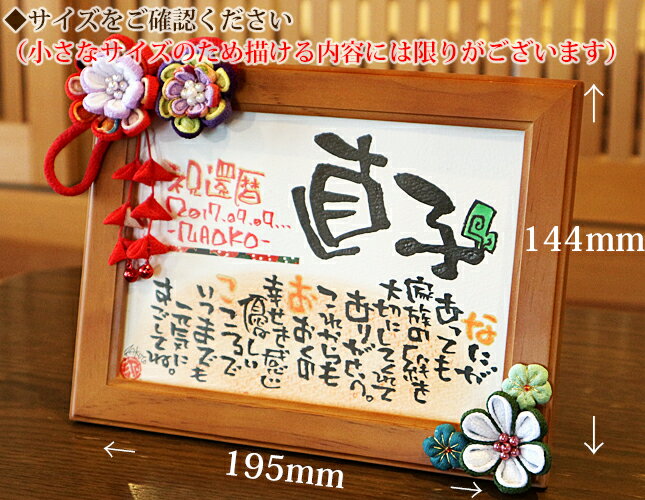 ◆サイズをご確認ください
(小さなサイズのため描ける内容には限りがございます)
直子
祝還暦
2017.09.09...
-NAOKO-
なにが
あっても
家族の絆を
大切にしてくれて
ありがとう。
これからも
おおくの
幸せを感じ
優しい
こころで
いつまでも
元気に
すごしてね。
144mm
195mm